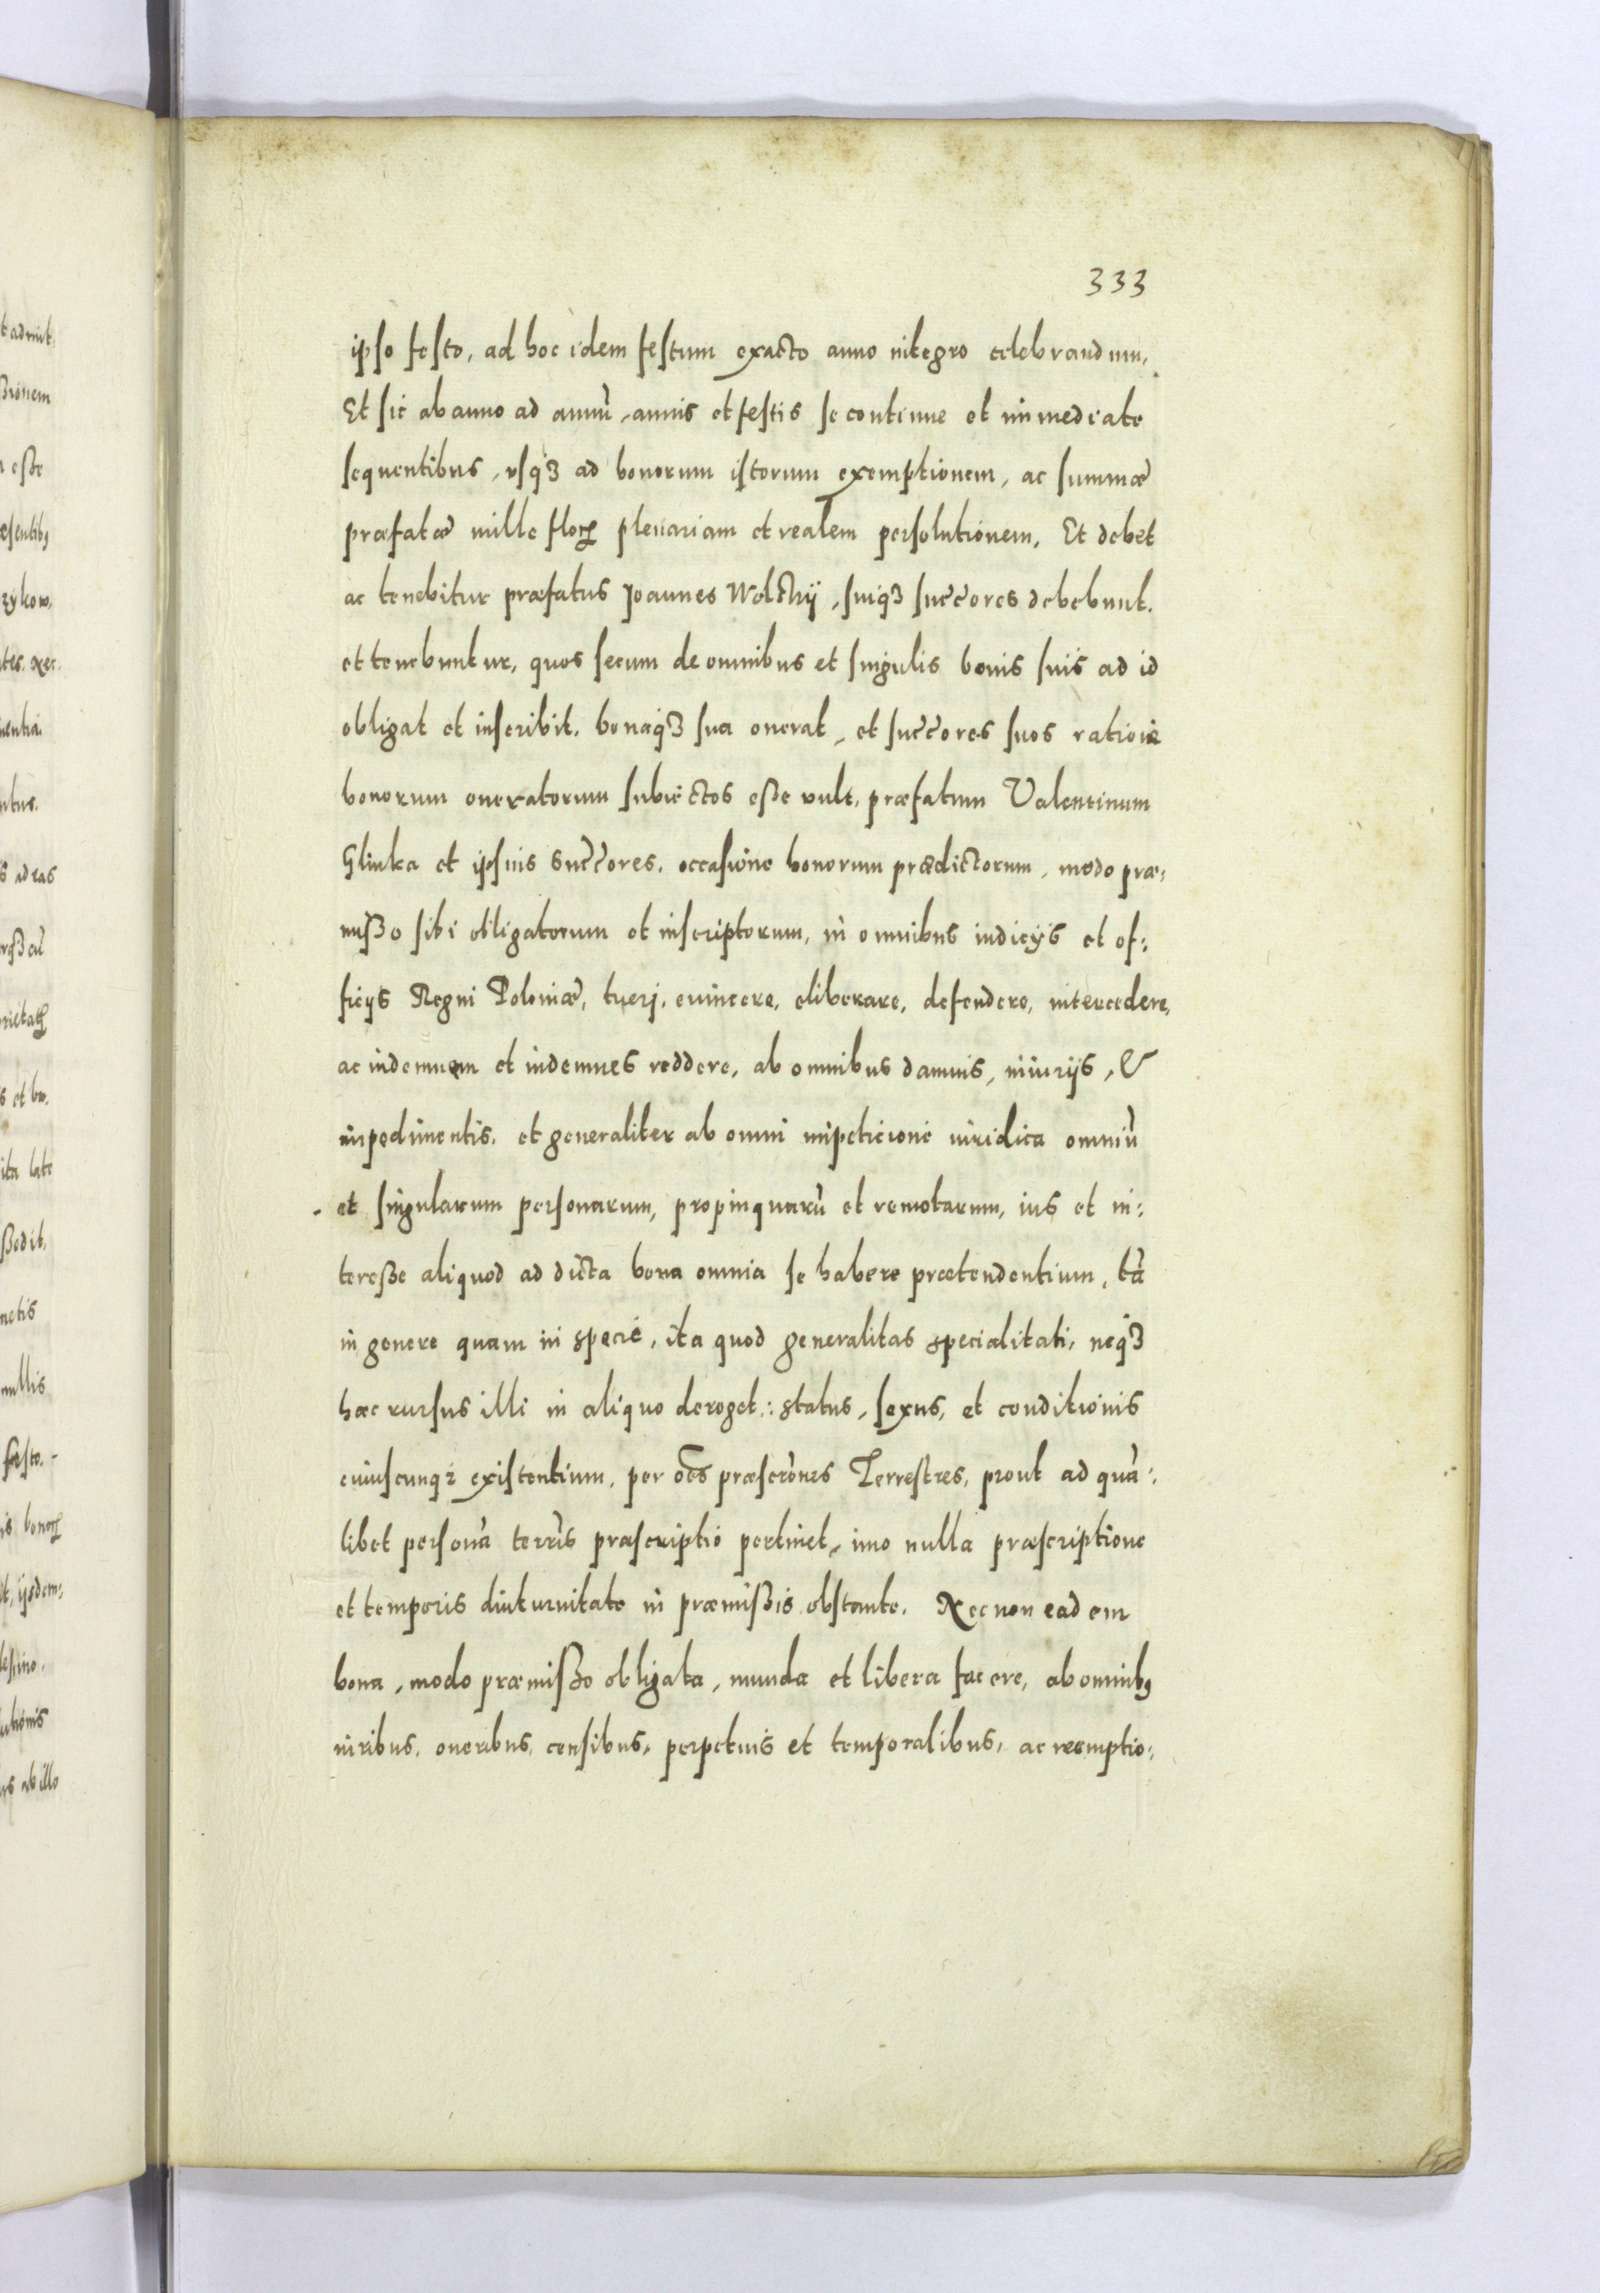 333
ipso festo, ad hoc idem festum exacto anno integro celebrandum.
Et sic ab anno ad annũ, annis et festis se continue et immediate
sequentibus, usq3 ad bonorum istorum exemptionem, ac summæ
præfatæ mille floꝝ plenariam et realem persolutionem. Et debet
ac tenebitur præfatus Joannes Wolckij, suiq3 succ̃ores debebunt.
et tenebuntur, quos secum de omnibus et singulis bonis suis ad id
obligat et inscribit, bonaq3 sua onerat, et succ̃ores suos ratione
bonorum oneratorum subiectos eße vult, præfatum Valentinum
Glinka et ipsius succ̃ores, occasione bonorum prædictorum, modo præ:
mißo sibi obligatorum et inscriptorum, in omnibus iudicijs et of:
ficijs Regni Poloniæ, tueri, euincere, eliberare, defendere, intercedere,
ac indemnem et indemnes reddere, ab omnibus damnis, iniurijs, &
impedimentis, et generaliter ab omni impeticione iuridica omniũ
et singularum personarum, propinquarũ et remotarum, ius et in:
tereße aliquod ad dicta bona omnia se habere prætendentium, tã
in genere quam in specie, ita quod generalitas specialitati, neq3
hæc rursus illi in aliquo deroget: status, sexus, et conditionis
cuiuscunq3 existentium, per oẽs præscrõnes Terrestres, prout ad quã:
libet personã terrĩs præscriptio pertinet, imo nulla præscriptione
et temporis diuturnitate in præmißis obstante. Nec non eadem
bona, modo præmißo obligata, munda et libera facere, ab omnibꝰ
iuribus, oneribus, censibus, perpetuis et temporalibus, ac reemptio: